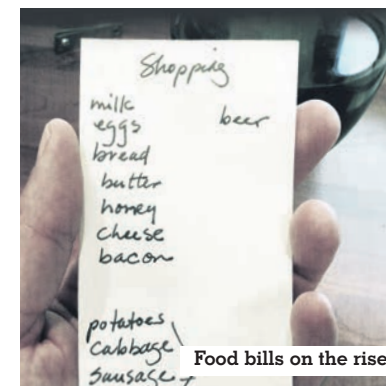 Shopping
milk
eggs beer
bread
butter
honey
cheese
bacon
potatoes
cabbage
sausage
Food bills on the rise